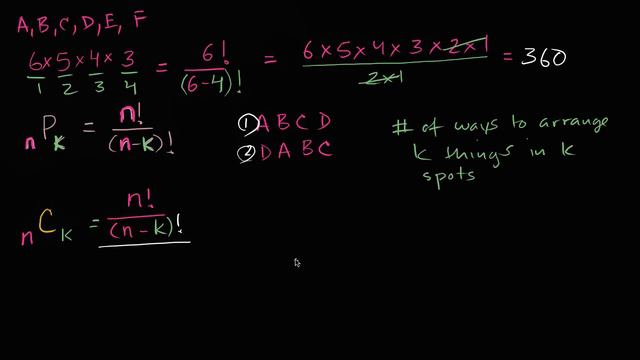 A, B, C, D, E, F
6 × 5 × 4 × 3 = 6! / (6-4)! = 6 × 5 × 4 × 3 × 2 × 1 / 2×1 = 360
1 2 3 4
nPk = n! / (n-k)!
① A B C D
② D A B C
# of ways to arrange
k things in k
spots
nCk = n! / (n - k)!